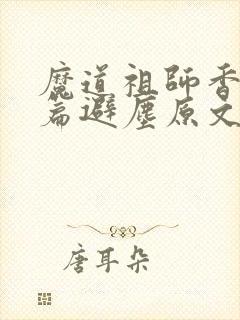 魔道祖師香
篇避塵原文
唐耳朵